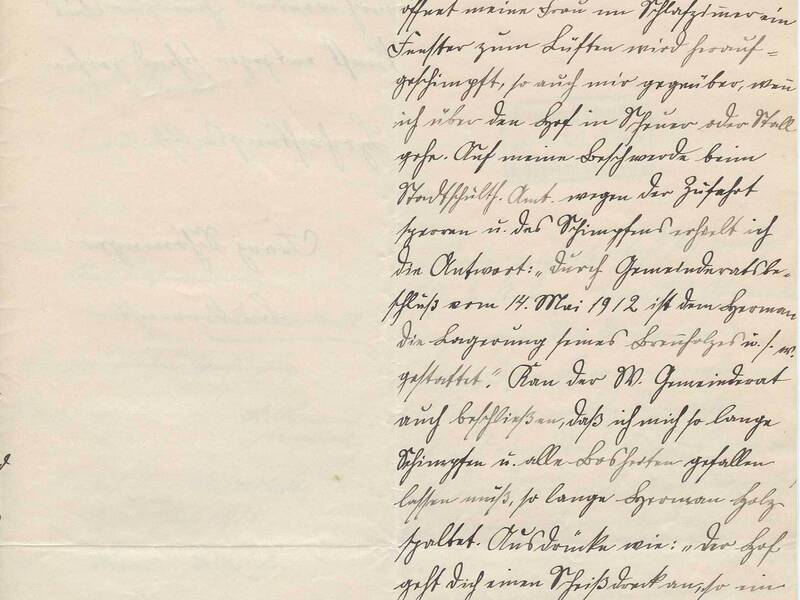 öffnet meine Frau im Schlafzimmer ein
Fenster zum Lüften wird herauf-
geschimpft, so auch mir gegenüber, wen̄
ich über den Hof in Scheuer oder Stall
gehe. Auf meine Beschwerde beim
Stadtschulth. Amt. wegen der Zufahrt
sperren u. des Schimpfens erhielt ich
die Antwort: „Durch Gemeinderatsbe-
schluß vom 14. Mai 1912 ist dem Herman
die Lagerung seines Bren̄holzes u. s. w.
gestattet.“ Kan der W. Gemeinderat
auch beschließen, daß ich mich so lange
Schimpfen u. alle Bosheiten gefallen
lassen muß, so lange Herman Holz
spaltet. Ausdrücke wie: „Der Hof
geht Dich einen Scheißdreck an, so ein